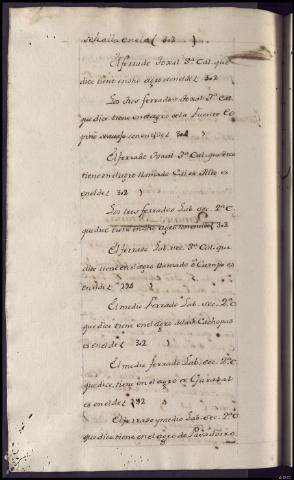 se halla en el a( 302 )
El ferrado Toxal 3ª Cal. que
dice tiene en dho agro es en el de( 302
Los tres ferrados Toxal 3ª Cal.
que dice tiene en el agro de la Fuente Co
pino son en el de( 302 )
El ferrado Toxal 3ª Cal. que dice
tiene en el agro llamado Cal. es Alto es
en el de( 302 )
Los tres ferrados Lab. sec. 2ª C.
que dice tiene en dho agro son en el de( 302
El ferrado Lab. sec. 3ª Cal. que
dice tiene en el agro llamado o Campo es
en el de( 294 )
El medio ferrado Lab. sec. 2ª C.
que dice tiene en el agro de las Cachopas
es en el de( 302 )
El medio ferrado Lab. sec. 2ª C.
que dice, tiene en el agro de Garabal
es en el de( 292 )
El ferrado y medio Lab. sec. 2ª C.
que dice tiene en el agro de Paradoiro